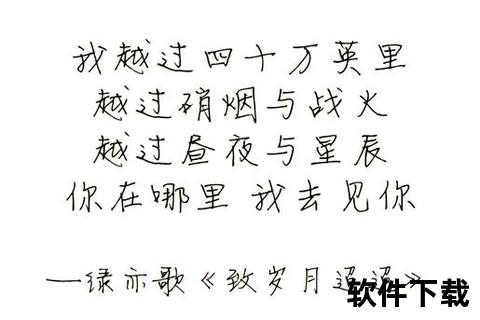 我越过四十万英里
越过硝烟与战火
越过昼夜与星辰
你在哪里 我去见你
—绿亦歌《致岁月迢迢》
软件下载